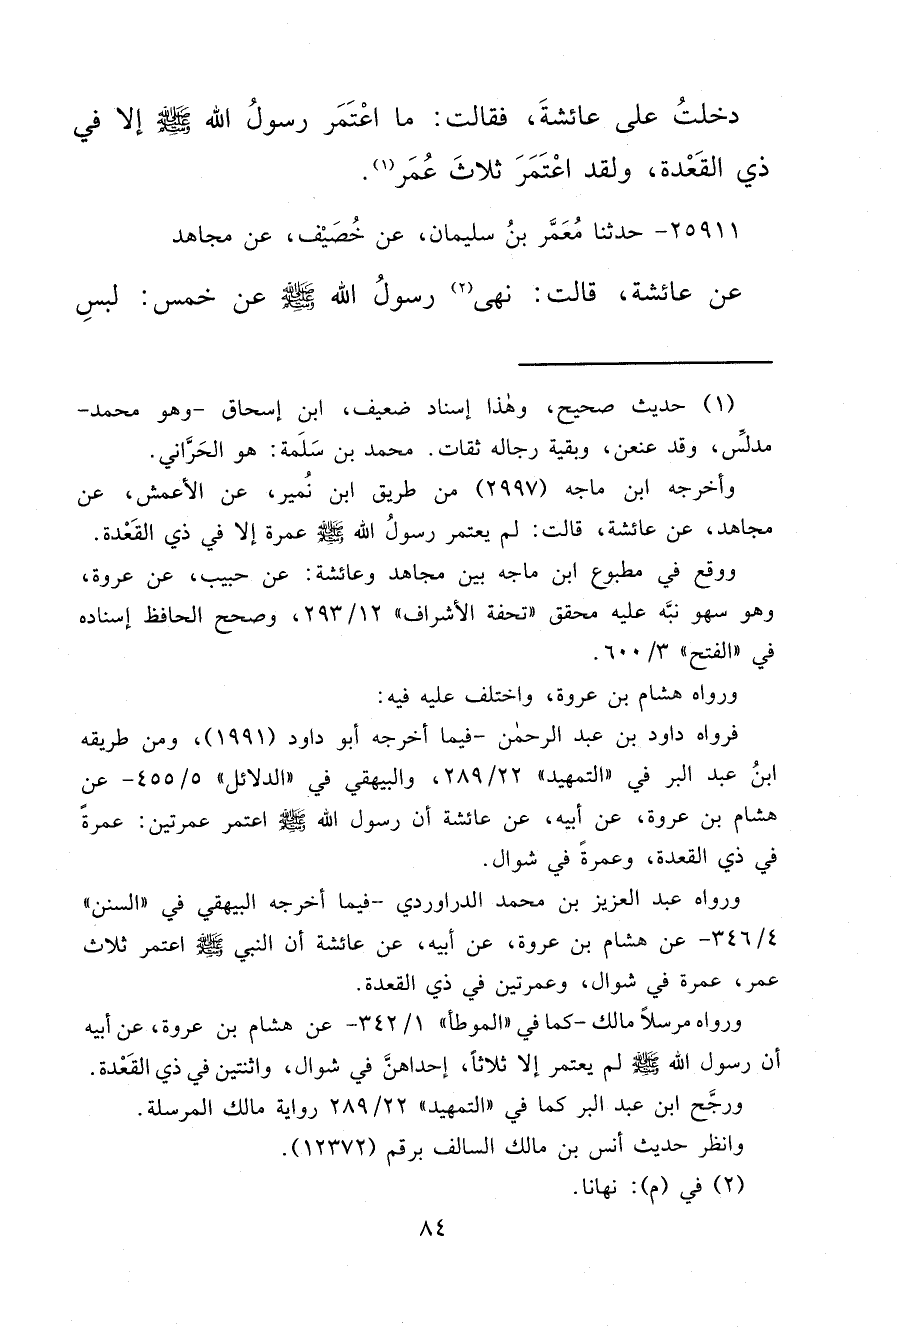 دخلتُ على عائشةَ، فقالت: ما اعْتَمَر رسولُ الله ﷺ إلا في
ذي القَعْدة، ولقد اعْتَمَرَ ثلاثَ عُمَر(١).
٢٥٩١١- حدثنا مُعَمَّر بنُ سليمان، عن خُصَيْف، عن مجاهد
عن عائشة، قالت: نهى(٢) رسولُ الله ﷺ عن خمس: لبسِ
(١) حديث صحيح، وهٰذا إسناد ضعيف، ابن إسحاق -وهو محمد-
مدلِّس، وقد عنعن، وبقية رجاله ثقات. محمد بن سَلَمة: هو الحَرَّاني.
وأخرجه ابن ماجه (٢٩٩٧) من طريق ابن نُمير، عن الأعمش، عن
مجاهد، عن عائشة، قالت: لم يعتمر رسولُ الله ﷺ عمرة إلا في ذي القَعْدة.
ووقع في مطبوع ابن ماجه بين مجاهد وعائشة: عن حبيب، عن عروة،
وهو سهو نبَّه عليه محقق «تحفة الأشراف» ٢٩٣/١٢، وصحح الحافظ إسناده
في «الفتح» ٦٠٠/٣.
ورواه هشام بن عروة، واختلف عليه فيه:
فرواه داود بن عبد الرحمٰن -فيما أخرجه أبو داود (١٩٩١)، ومن طريقه
ابنُ عبد البر في «التمهيد» ٢٨٩/٢٢، والبيهقي في «الدلائل» ٤٥٥/٥- عن
هشام بن عروة، عن أبيه، عن عائشة أن رسول الله ﷺ اعتمر عمرتين: عمرةً
في ذي القعدة، وعمرةً في شوال.
ورواه عبد العزيز بن محمد الدراوردي -فيما أخرجه البيهقي في «السنن»
٣٤٦/٤- عن هشام بن عروة، عن أبيه، عن عائشة أن النبي ﷺ اعتمر ثلاث
عمر، عمرة في شوال، وعمرتين في ذي القعدة.
ورواه مرسلاً مالك -كما في «الموطأ» ٣٤٢/١- عن هشام بن عروة، عن أبيه
أن رسول الله ﷺ لم يعتمر إلا ثلاثاً، إحداهنَّ في شوال، واثنتين في ذي القَعْدة.
ورجَّح ابن عبد البر كما في «التمهيد» ٢٨٩/٢٢ رواية مالك المرسلة.
وانظر حديث أنس بن مالك السالف برقم (١٢٣٧٢).
(٢) في (م): نهانا.
٨٤